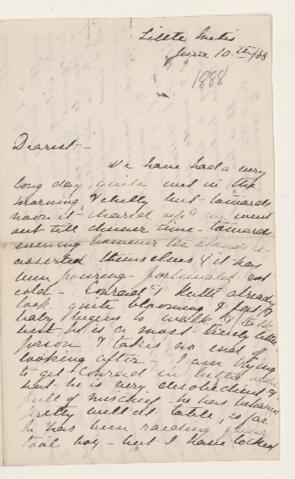 Little Metis
June 10th/88
1888
Dearest -
We have had a very
long day, quite wet in the
morning, & chilly but towards
noon it cleared up & we went
out till dinner time - toward
evening however the clouds re-
asserted themselves & it has
been pouring
cold - Conrad & Ruth already
look quite blooming &
baby begins to walk
but he is a most little
person & takes no end of
looking after - I am trying
to get Conrad in
but he is very disobedient &
full of mischief - he has behaved
pretty well at table, so far
he has been reading
boy - but I have locked